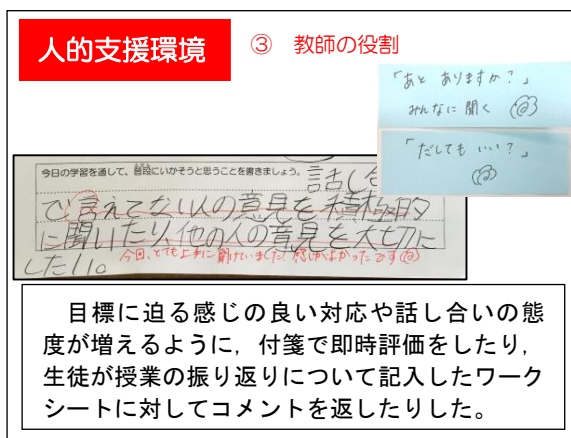 人的支援環境
③ 教師の役割
「あと ありますか？」
みんなに聞く
「だしても いい？」
今日の学習を通して、普段にいかそうと思うことを書きましょう。
話し合
で言えてない人の意見を積極的
に聞いたり、他の人の意見を大切に
したい。
今回、とても上手に聞けていました。感じがよかったです
目標に迫る感じの良い対応や話し合いの態
度が増えるように，付箋で即時評価をしたり，
生徒が授業の振り返りについて記入したワーク
シートに対してコメントを返したりした。